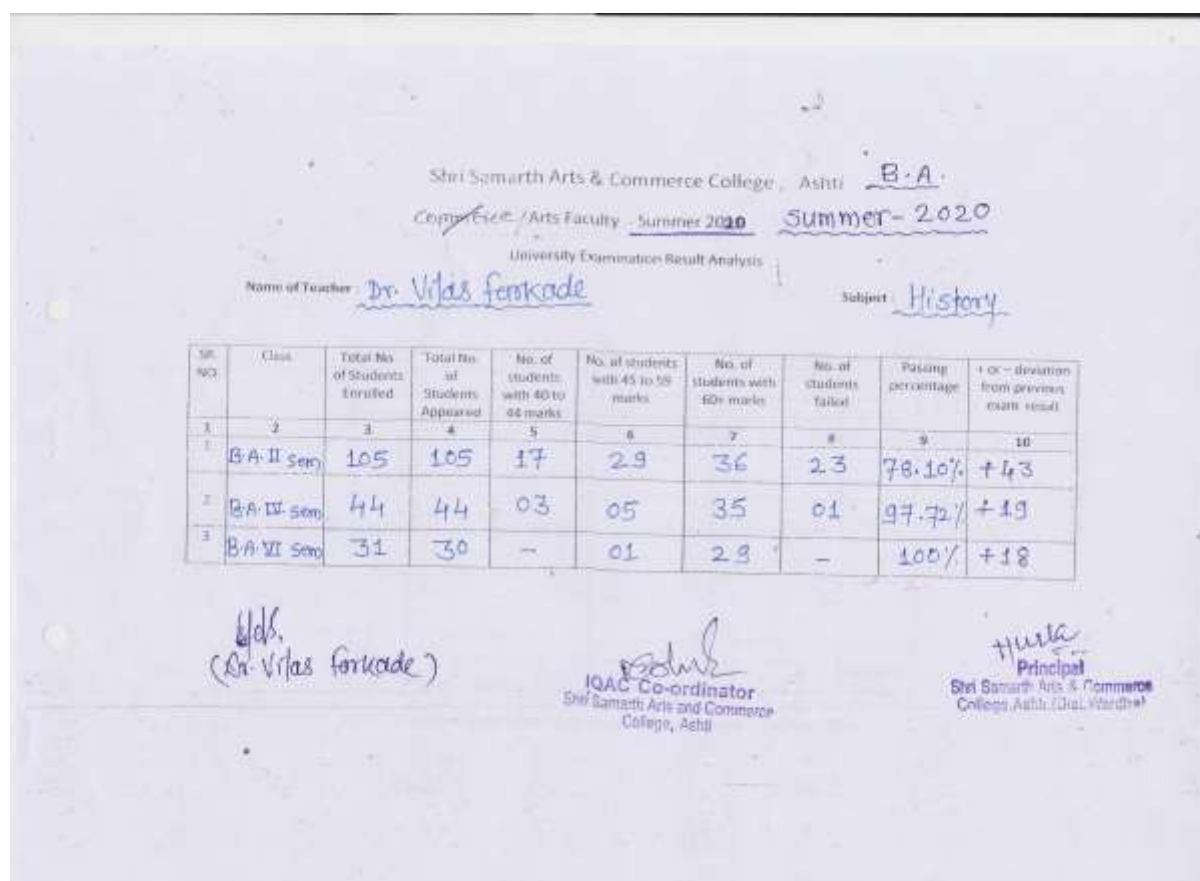 Shri Samarth Arts & Commerce College, Ashti B.A.
Commerce / Arts Faculty - Summer 2020 Summer-2020
University Examination Result Analysis
Name of Teacher : Dr. Vilas forkade Subject : History
SR. NO. Class Total No. of Students Enrolled Total No. of Students Appeared No. of students with 40 to 44 marks No. of students with 45 to 59 marks No. of students with 60+ marks No. of students failed Passing percentage + or - deviation from previous exam result
1 2 3 4 5 6 7 8 9 10
1 B.A. II Sem 105 105 17 29 36 23 78.10% +43
2 B.A. IV Sem 44 44 03 05 35 01 97.72% +19
3 B.A. VI Sem 31 30 - 01 29 - 100% +18
(Dr. Vilas forkade)
IQAC Co-ordinator
Shri Samarth Arts and Commerce
College, Ashti
Principal
Shri Samarth Arts & Commerce
College Ashti (Dist. Wardha)